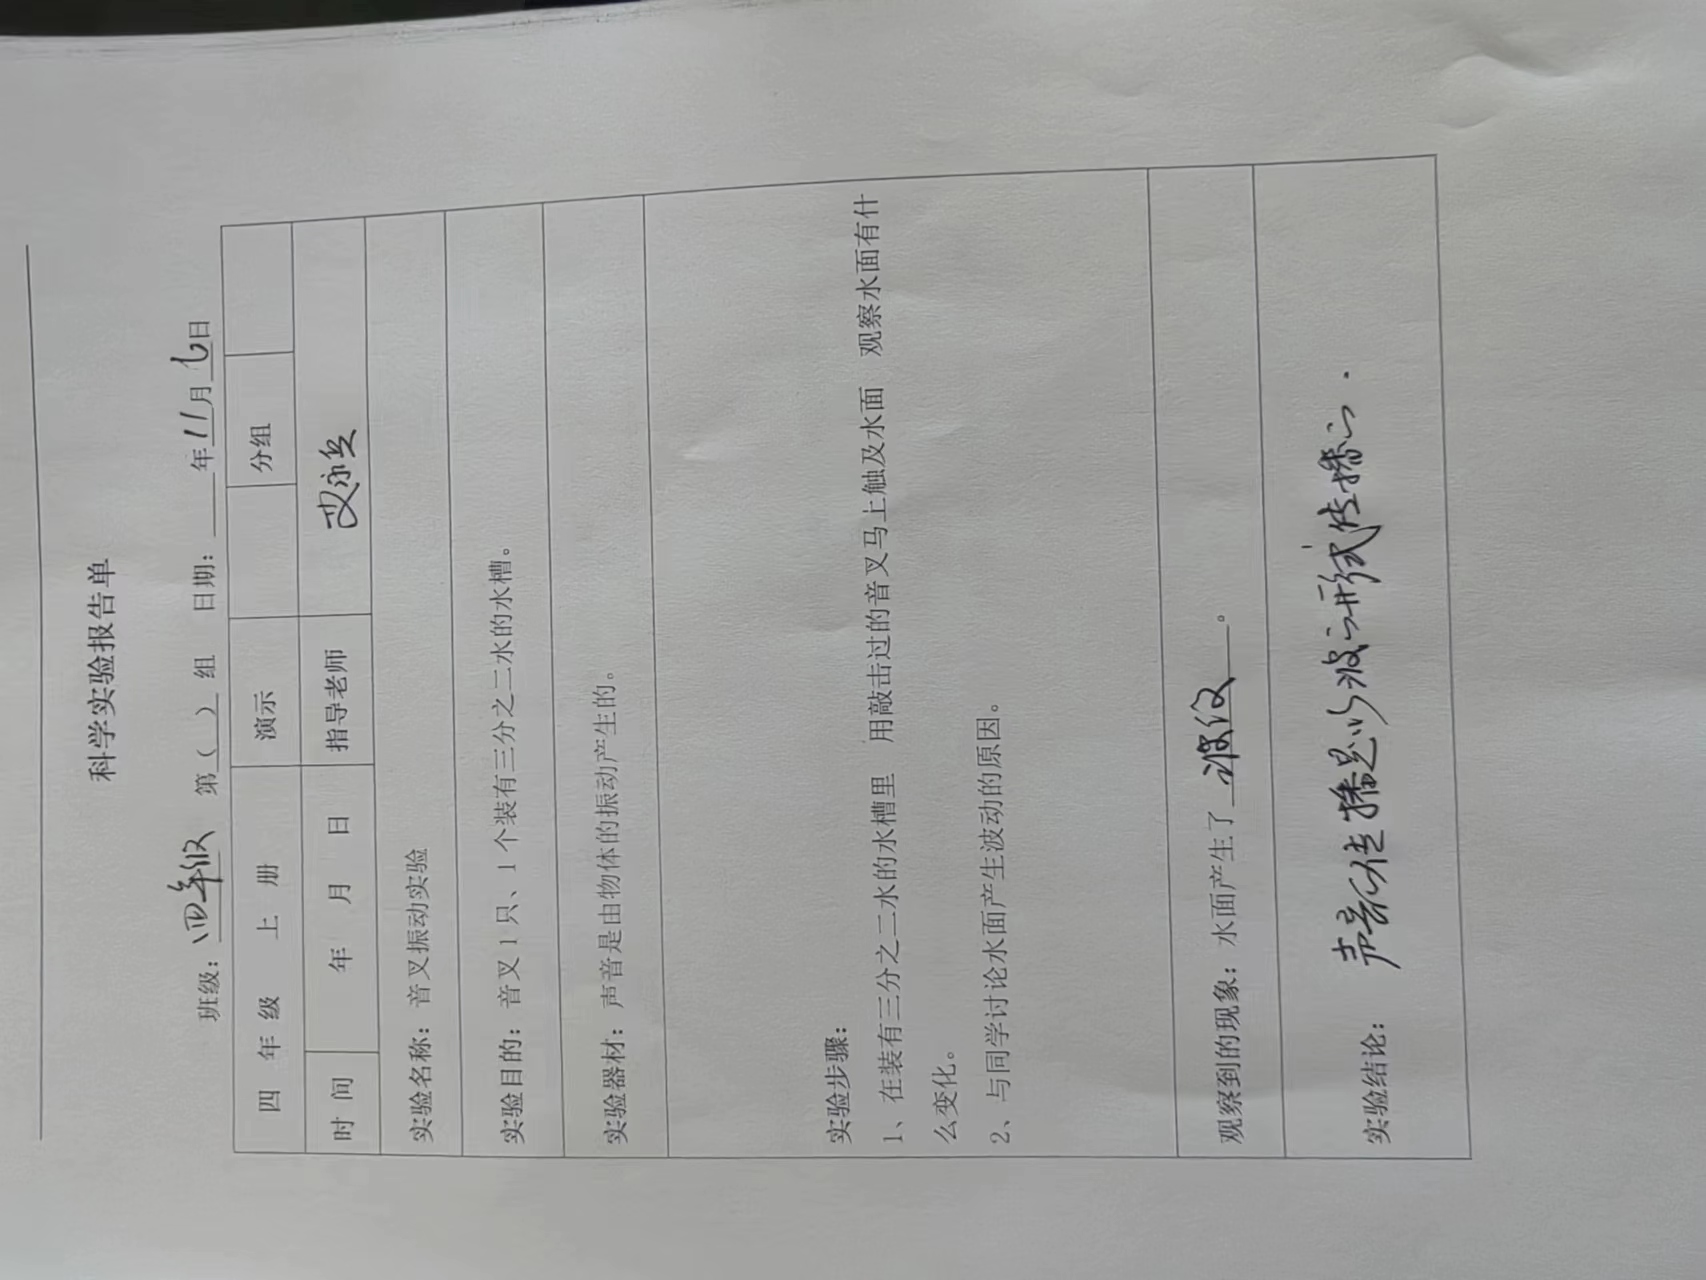 科学实验报告单
班级：四年级 第（ ）组 日期： 年11月七日
四 年 级 上 册 演示 分组
时 间 年 月 日 指导老师 艾永兵
实验名称：音叉振动实验
实验目的：音叉1只、1个装有三分之二水的水槽。
实验器材：声音是由物体的振动产生的。
实验步骤：
1、在装有三分之二水的水槽里 用敲击过的音叉马上触及水面 观察水面有什
么变化。
2、与同学讨论水面产生波动的原因。
观察到的现象：水面产生了 波纹 。
实验结论： 声音的传播是以波的形式传播的.